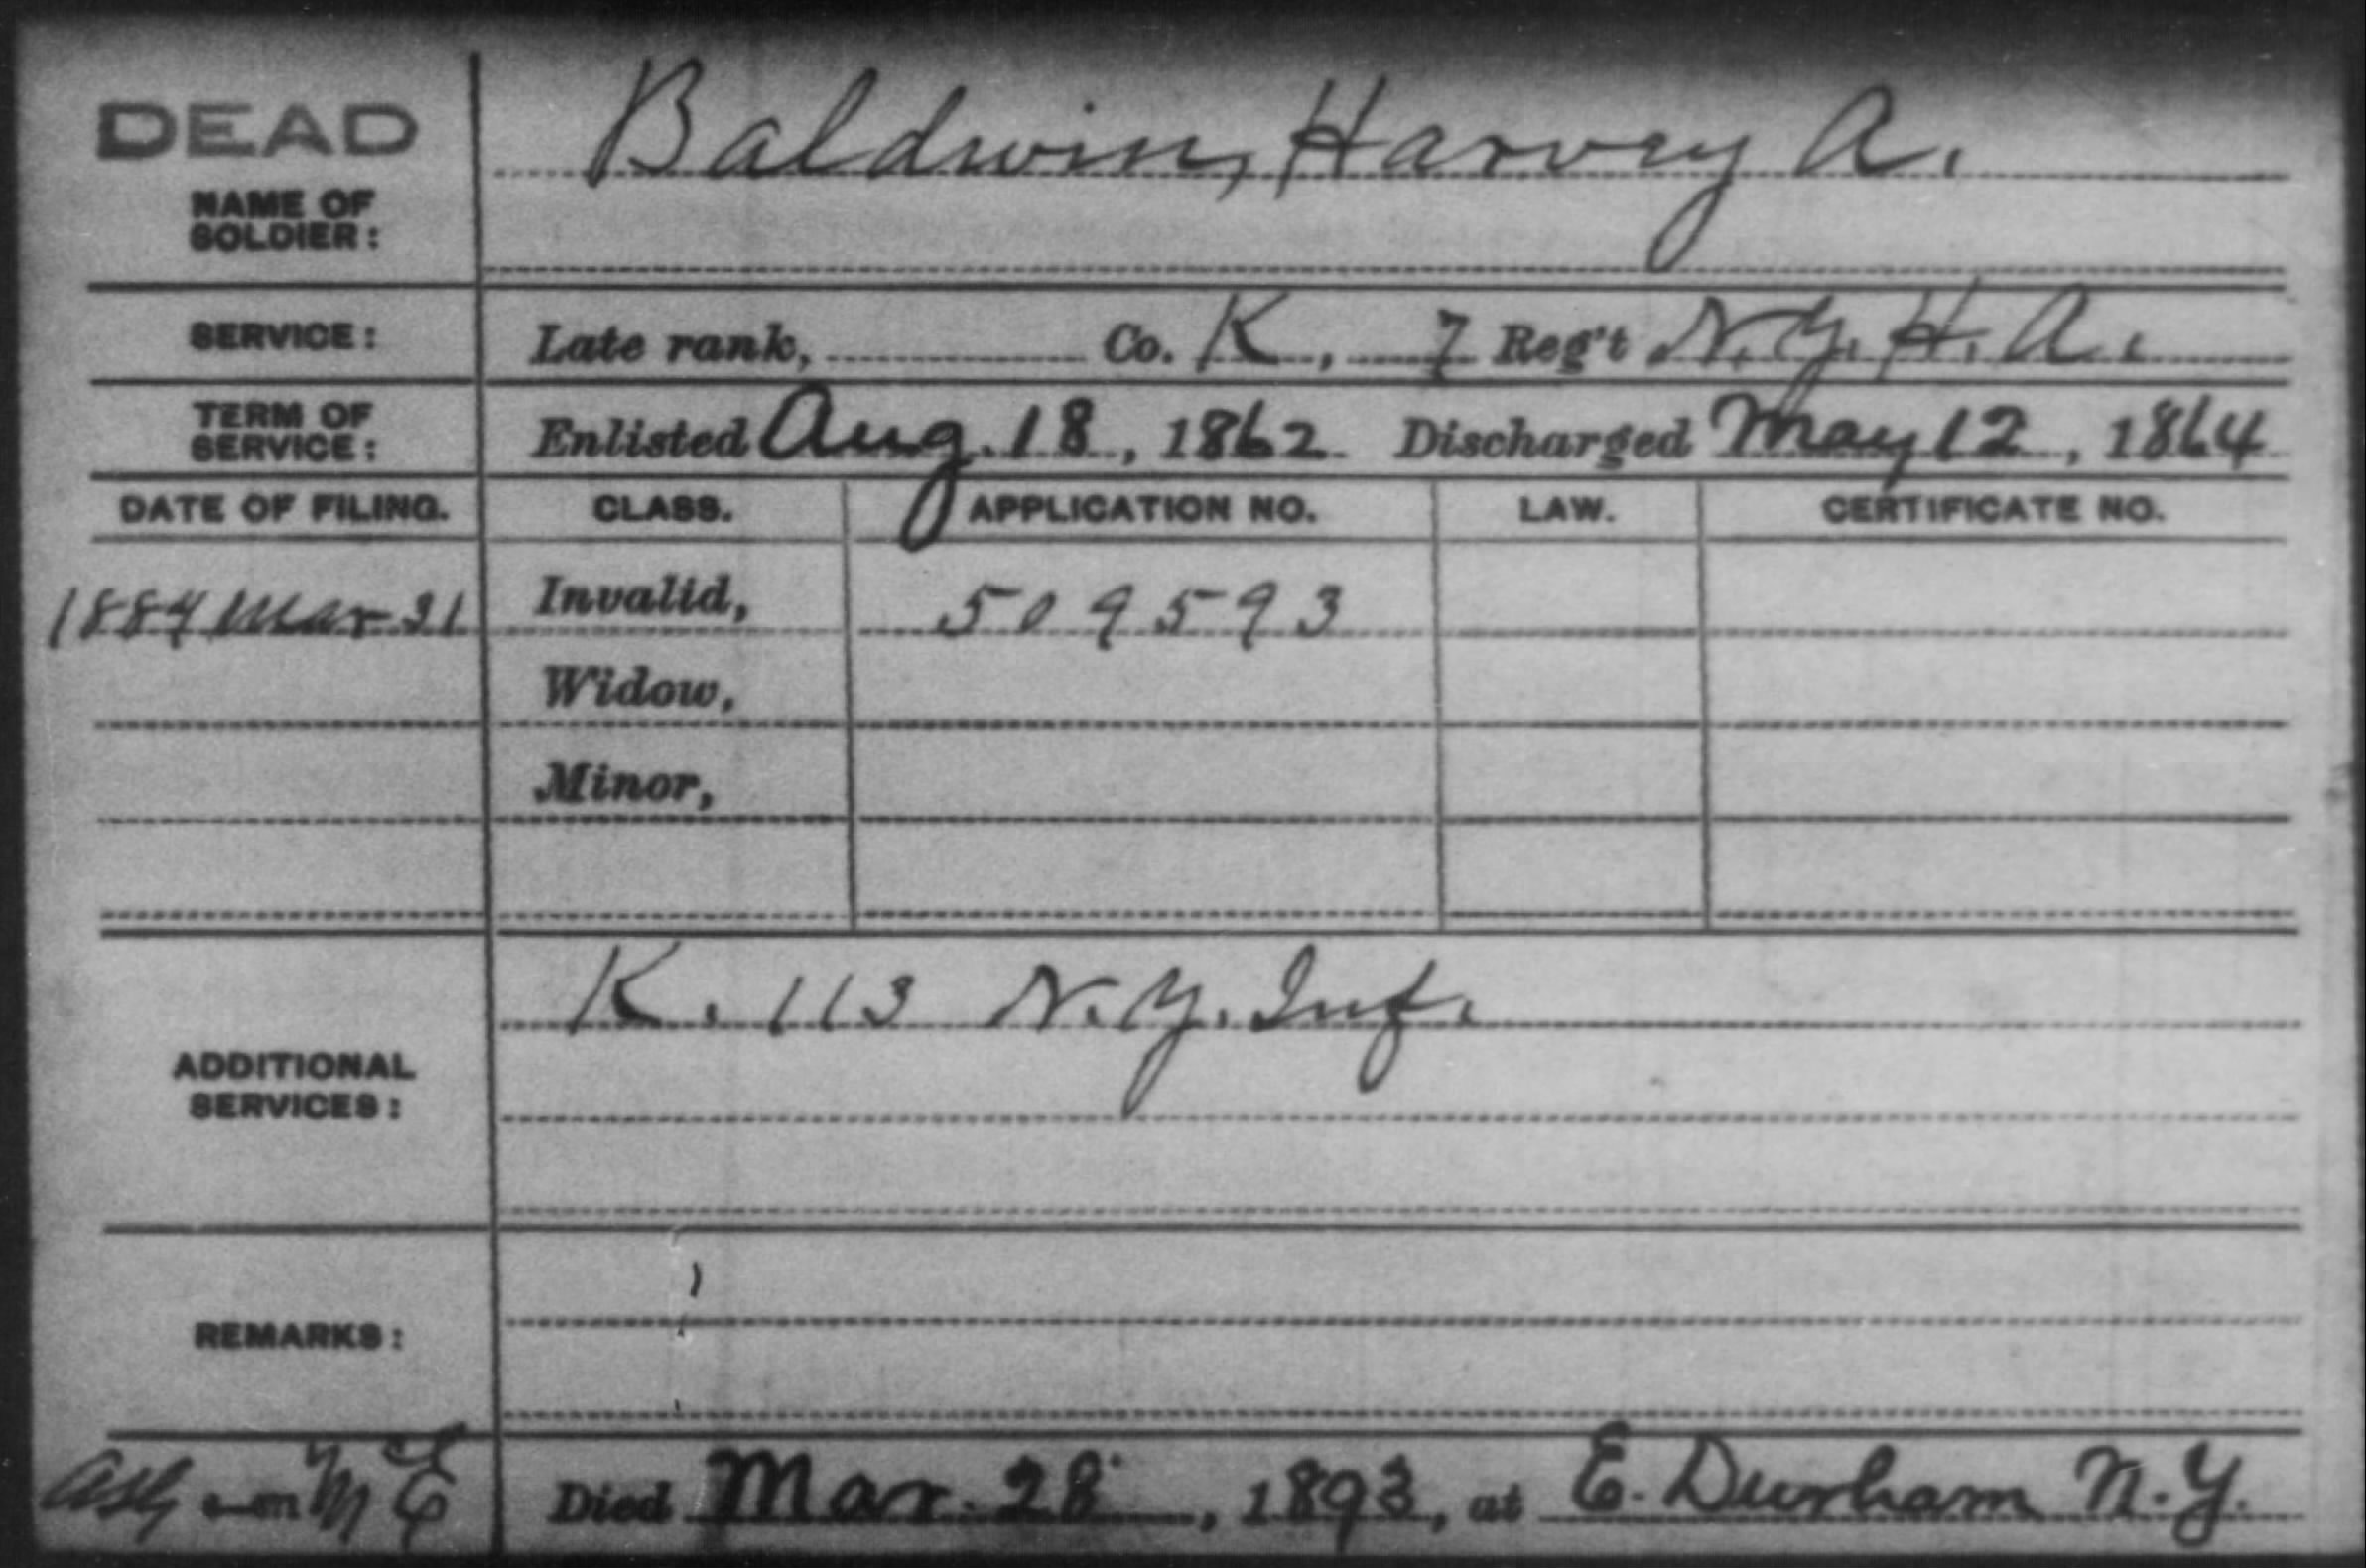 DEAD
Baldwin, Harvey A.
NAME OF
SOLDIER:
SERVICE: Late rank, Co. K, 7 Reg't N.Y. H. A.
TERM OF
SERVICE: Enlisted Aug. 18, 1862 Discharged May 12, 1864
DATE OF FILING. CLASS. APPLICATION NO. LAW. CERTIFICATE NO.
1884 Mar 31 Invalid, 509593
Widow,
Minor,
K. 113 N.Y. Inf.
ADDITIONAL
SERVICES:
REMARKS:
Died Mar. 28, 1893, at E. Durham N.Y.